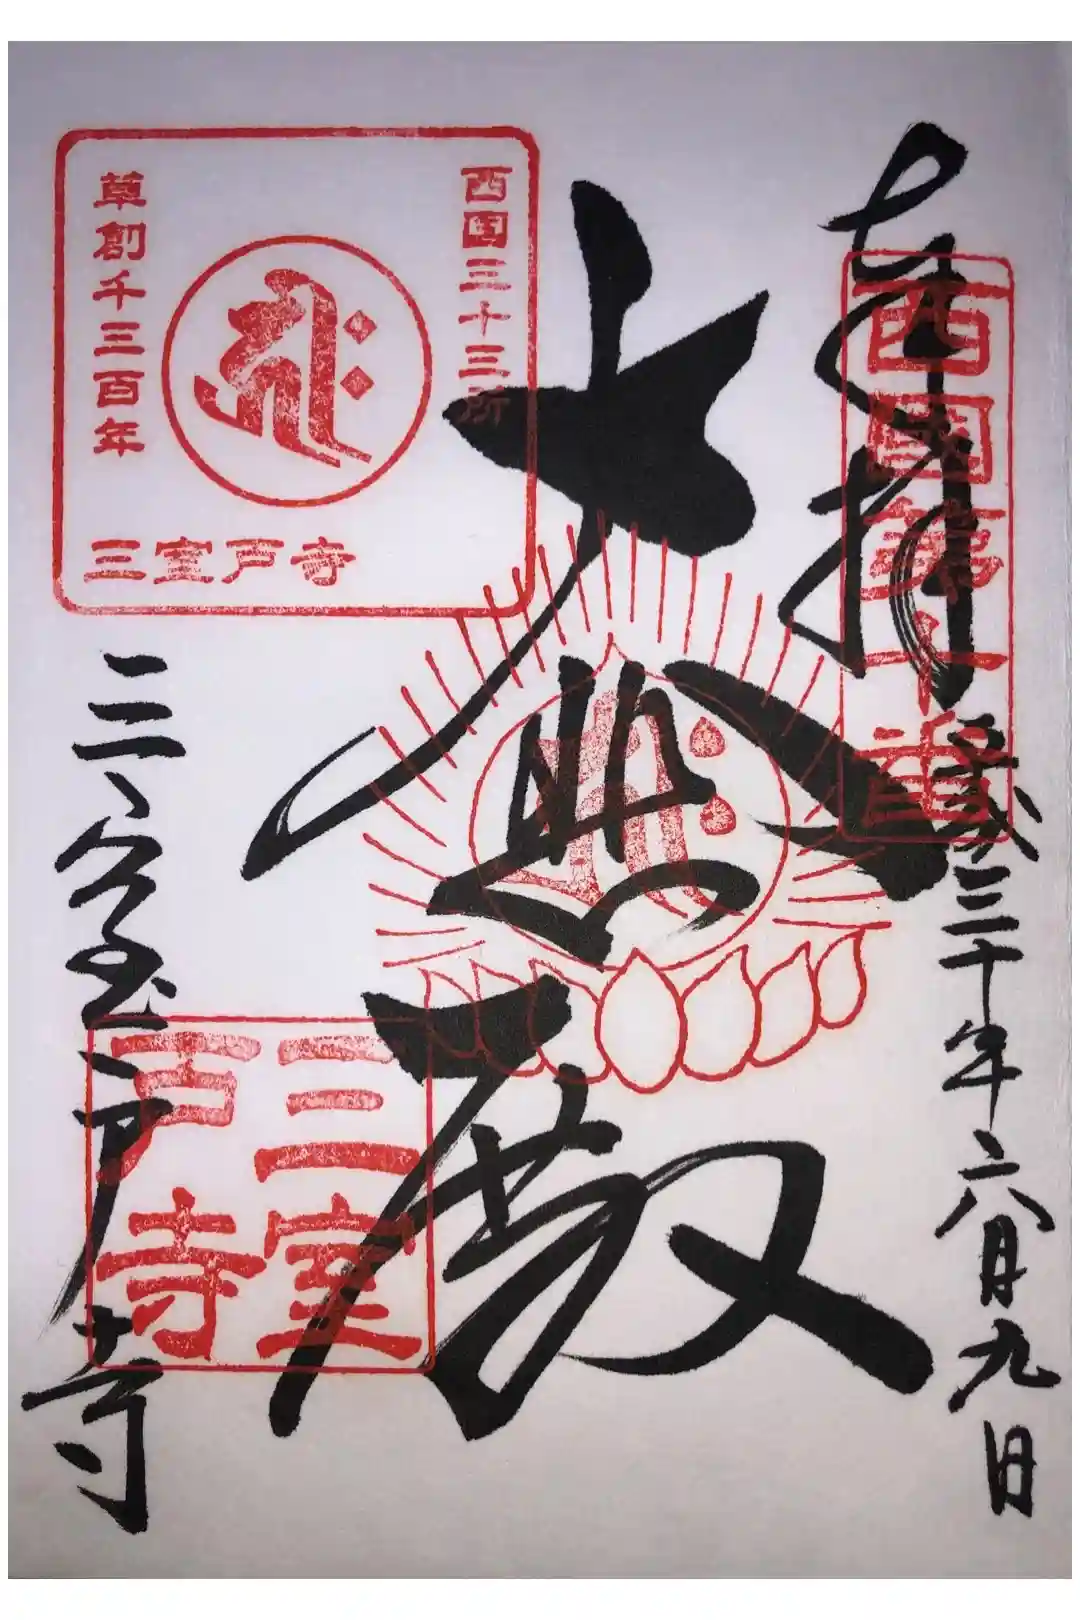 奉拝
西國第十番
平成三十年六月九日
大悲殿
西国三十三所
草創千三百年
三室戸寺
三室戸寺
三室戸寺